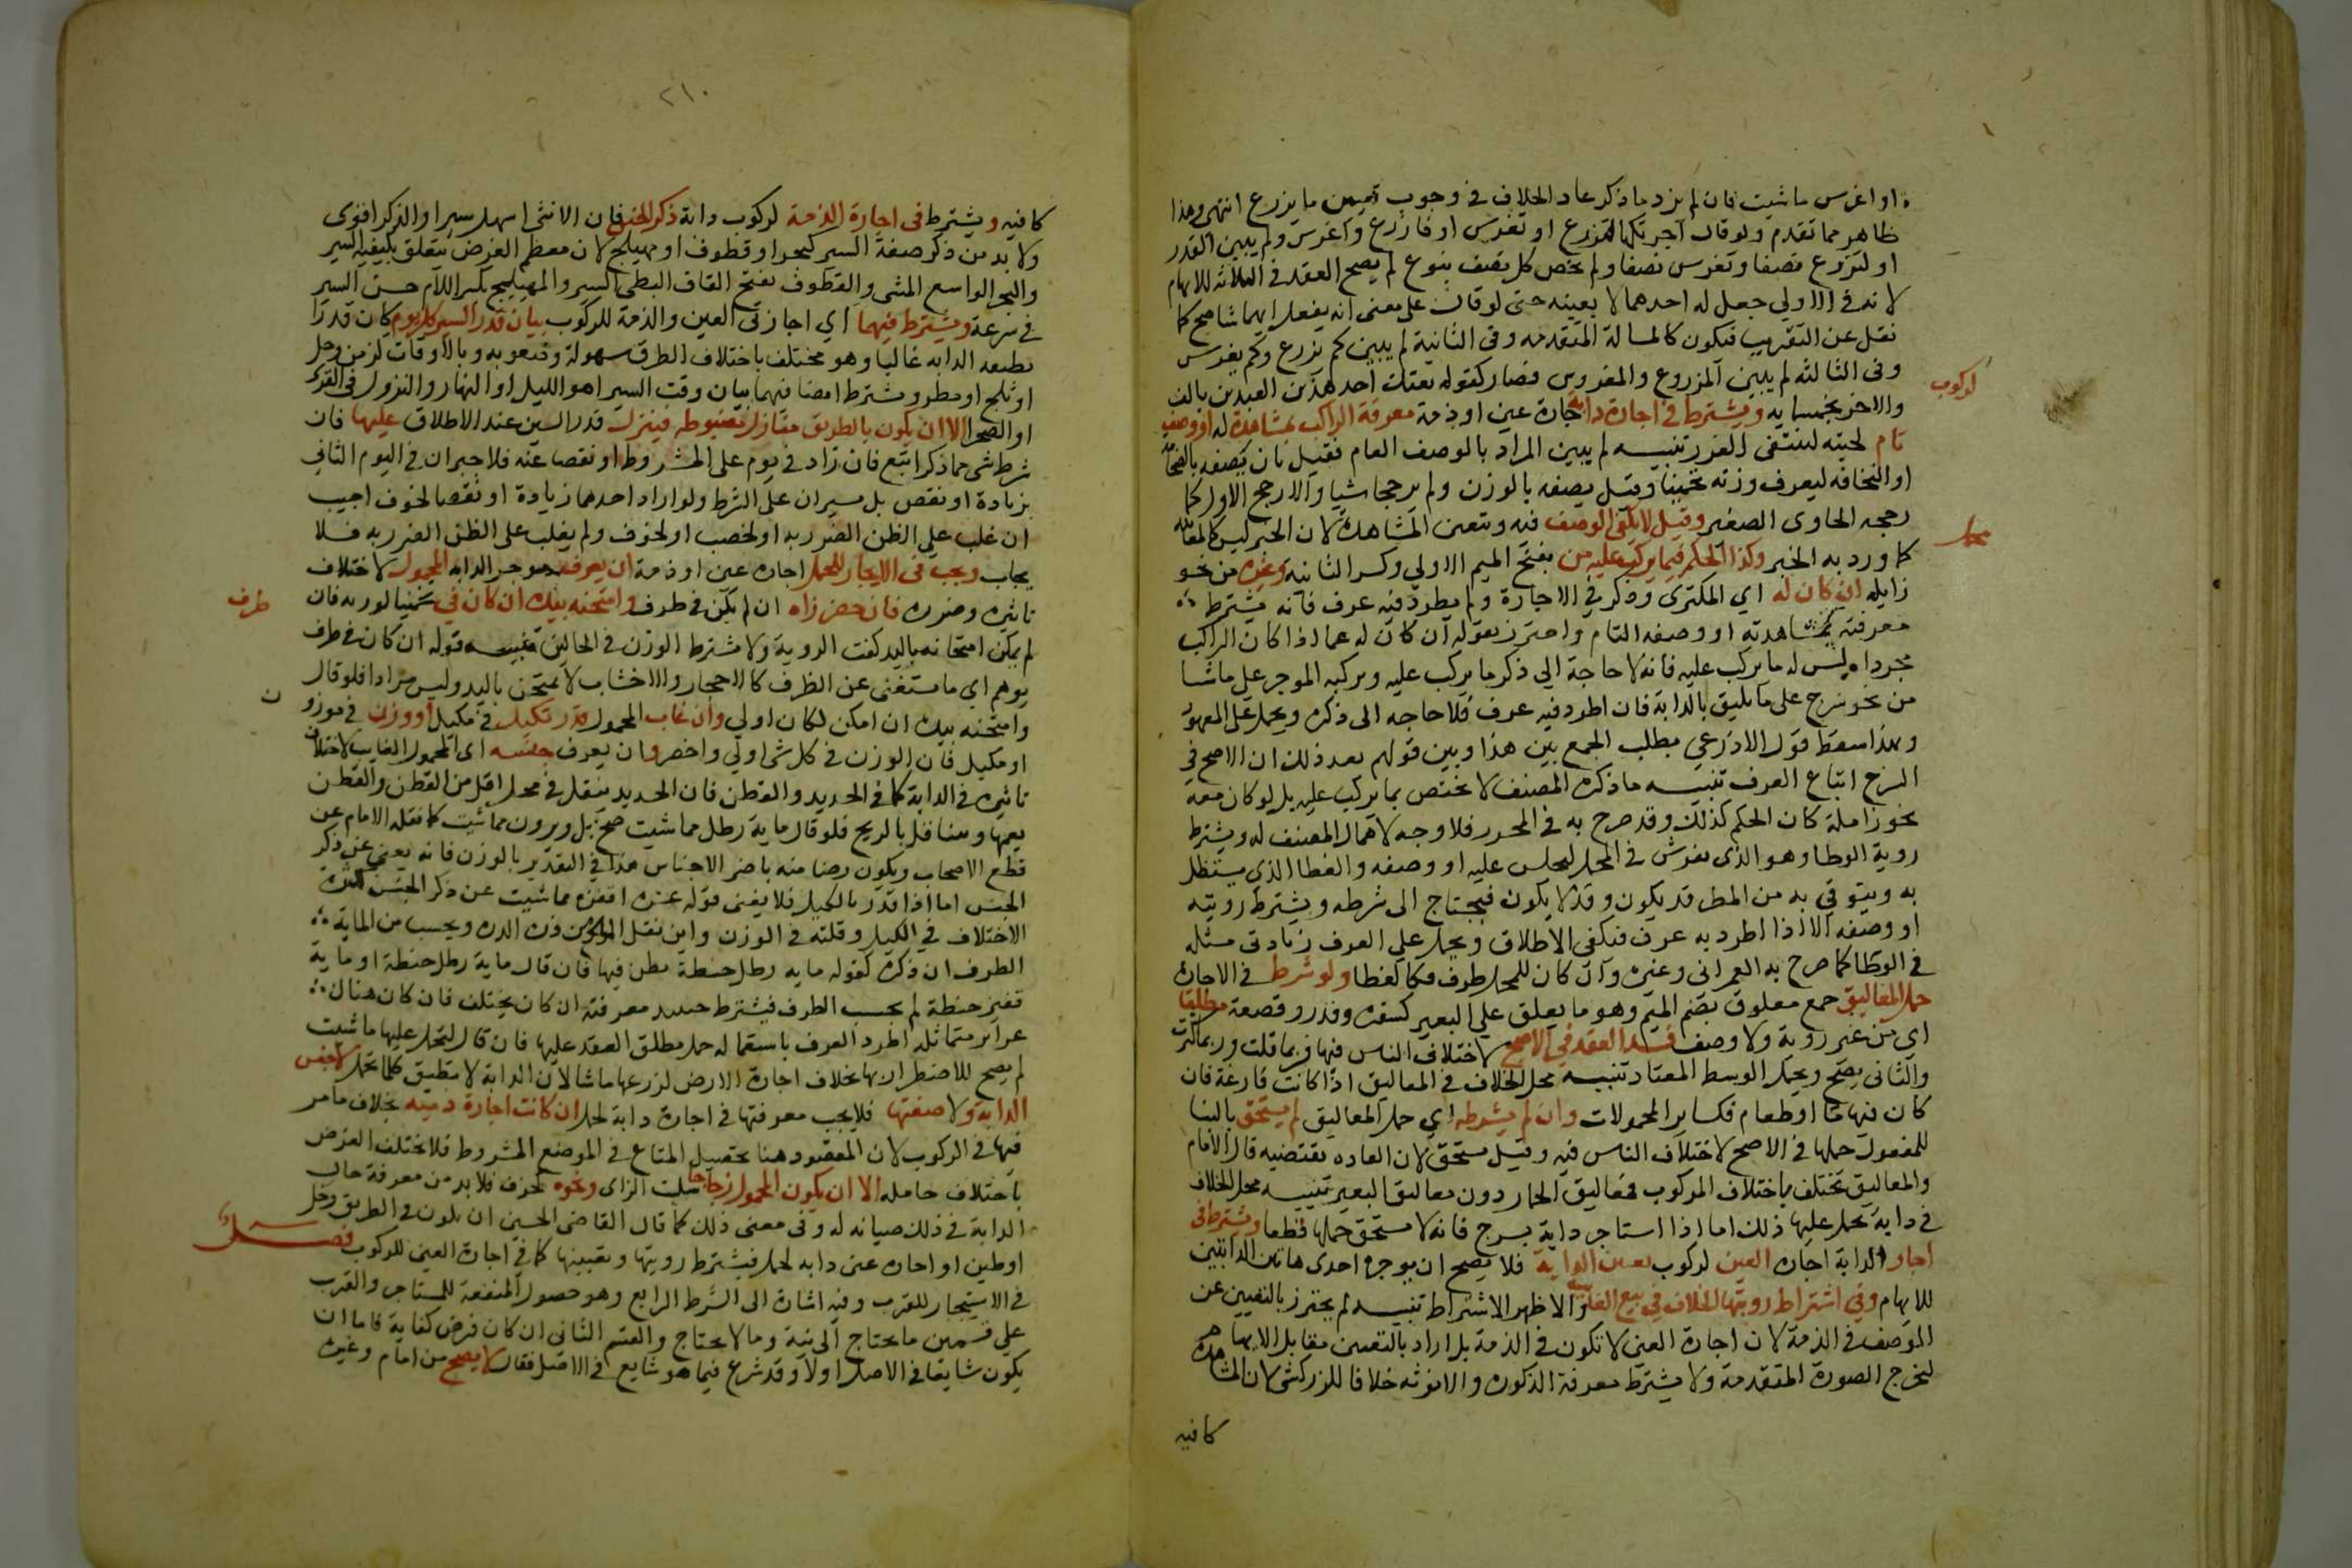 او اغرس ما شيت فان لم يزد ما ذكر عاد الخلاف في وجوب تعيين ما يزرع انتهى وهذا
ظاهر مما تقدم ولو قال آجرتكها لتزرع او تغرس او فازرع واغرس ولم يبين القدر
او لتزرع نصفا وتغرس نصفا ولم يخص كل نصف بنوع لم يصح العقد في الثلاثه للابهام
لانه في الاولي جعل له احدهما لا بعينه حتى لو قال على معنى انه يفعل ايهما شا صح كما
نقل عن التقريب فيكون كالمسالة المتقدمه وفي الثانية لم يبين كم يزرع وكم يغرس
وفي الثالثه لم يبين المزروع والمغروس فصار كقوله بعتك احد هذين العبدين بالف
والاخر بخمسمايه ويشترط في اجارة دابة لركوب اجارة عين او ذمة معرفة الراكب بمشاهدة له او وصف
تام لجثته لينتفى الغرر تنبيه لم يبين المراد بالوصف التام فقيل بان يصفه بالضخامة
او النحافه ليعرف وزنه تخمينا وقيل يصفه بالوزن ولم يرجحا شيا والارجح الاول كما
رجحه الحاوى الصغير وقيل لا يكفي الوصف فيه ويتعين المشاهدة لان الخبر ليس كالمعاينه
كما ورد به الخبر وكذا الحكم فيما يركب عليه من محمل بفتح الميم الاولي وكسر الثانيه وغيره من نحو
زامله ان كان له اي المكترى وذكر في الاجارة ولم يطرد فيه عرف فانه يشترط
معرفته بمشاهدته او وصفه التام واحترز بقوله ان كان له عما اذا كان الراكب
مجردا ليس له ما يركب عليه فانه لا حاجة الي ذكر ما يركب عليه ويركبه الموجر على ما شا
من نحو سرج على ما يليق بالدابة فان اطرد فيه عرف فلا حاجه الى ذكره ويحمل على المعهود
وبهذا سقط قول الاذرعي يطلب الجمع بين هذا وبين قولهم بعد ذلك ان الاصح في
السرج اتباع العرف تنبيه ما ذكره المصنف لا يختص بما يركب عليه بل لو كان معه
نحو زاملة كان الحكم كذلك وقد صرح به في المحرر فلا وجه لاهمال المصنف له ويشترط
روية الوطا وهو الذى يفرش في المحمل ليجلس عليه او وصفه والغطا الذي يستظل
به ويتوقي به من المطر قد يكون وقد لا يكون فيحتاج الى شرطه ويشترط رويته
او وصفه الا اذا اطرد به عرف فيكفى الاطلاق ويحمل على العرف زياد ت مثله
في الوطا كما صرح به العمرانى وغيره وان كان للمحمل ظرف فكالغطا ولو شرط في الاجارة
حمل المعاليق جمع معلوق بضم الميم وهو ما يعلق علي البعير كسفره وقدر وقصعة مطلقا
اي من غير روية ولا وصف فسد العقد في الاصح لاختلاف الناس فيها فربما قلت وربما كثرت
والثاني يصح ويحمل الوسط المعتاد تنبيه محل الخلاف في المعاليق اذا كانت فارغة فان
كان فيها ما او طعام فكساير المحمولات وان لم يشرطه اي حمل المعاليق لم يستحق بالبنا
للمفعول حملها في الاصح لاختلاف الناس فيه وقيل يستحق لان العاده تقتضيه قال الامام
والمعاليق تختلف باختلاف المركوب فمعاليق الحمار دون معاليق البعير تنبيه محل الخلاف
في دابة يحمل عليها ذلك اما اذا استاجر دابة بسرج فانه لا يستحق حملها قطعا ويشترط في
اجارة الدابة اجارة العين لركوب تعيين الدابة فلا يصح ان يوجره احدى هاتين الدابتين
للابهام وفي اشتراط رويتها الخلاف في بيع الغايب والاظهر الاشتراط تنبيه لم يحترز بالتعيين عن
الوصف في الذمة لان اجارة العين لا تكون في الذمة بل اراد بالتعيين مقابل الابهام
ليخرج الصورة المتقدمة ولا يشترط معرفة الذكورة والانوثه خلافا للزركشي لان المشاهدة
كافيه
لركوب
محمل
٢١٠
كافيه ويشترط في اجارة الذمة لركوب دابة ذكر الجنس فان الانثى اسهل سيرا والذكر اقوى
ولا بد من ذكر صفة السير كبحر او قطوف او مهيلج لان معظم الغرض يتعلق بكيفيه السير
والبحر الواسع المشى والقطوف بفتح القاف البطى السير والمهيلج بكسر اللام حسن السير
في سرعة ويشترط فيهما اي اجازتى العين والذمة للركوب بيان قدر السير كل يوم كان قدرا
تطيقه الدابه غالبا وهو مختلف باختلاف الطرق سهولة وصعوبه وبالاوقات لزمن وحل
او ثلج او مطر ويشترط ايضا فيهما بيان وقت السير اهو الليل او النهار والنزول في القرى
او الصحرا الا ان يكون بالطريق منازل مضبوطه فينزل قدر السير عند الاطلاق عليها فان
شرط شى مما ذكر اتبع فان زاد في يوم على المشروط او نقصا عنه فلا جبران في اليوم الثاني
بزيادة او نقص بل يسيران على الشرط ولو اراد احدهما زيادة او نقصا لخوف اجيب
ان غلب على الظن الضرر به او لخصب او لخوف ولم يغلب على الظن الضرر به فلا
يجاب ويجب في الايجار للحمل اجارة عين او ذمة ان يعرف موجر الدابه المحمول لاختلاف
تاثيره وضرره فان حضر راه ان لم يكن في ظرف وامتحنه بيده ان كان في ظرف تخمينا لوزنه فان
لم يمكن امتحانه باليد كفت الروية ولا يشترط الوزن في الحالين تنبيه قوله ان كان في ظرف
يوهم اي ما يستغنى عن الظرف كالاحجار والاخشاب لا يمتحن باليد وليس مرادا فلو قال
وامتحنه بيده ان امكن لكان اولي وان غاب المحمول قدر بكيل في مكيل او وزن في موزون
او مكيل فان الوزن في كل شى اولي واخصر وان يعرف جنسه اى المحمول الغايب لاختلاف
تاثيره في الدابة كما في الحديد والقطن فان الحديد يثقل في محل اقل من القطن والقطن
يعمها ويتثاقل بالريح فلو قال ماية رطل مما شيت صح بل وبدون مما شيت كما نقله الامام عن
قطع الاصحاب ويكون رضا منه باضر الاجناس هذا في التقدير بالوزن فانه يغني عن ذكر
الجنس اما اذا قدر بالكيل فلا يغنى قوله عشره اقفزه مما شيت عن ذكر الجنس لكثرة
الاختلاف في الكيل وقلته في الوزن واين ثقل الملح من ثقل الذرة ويحسب من الماية
الظرف ان ذكره كقوله مايه رطل حنطة بظرفها فان قال ماية رطل حنطة او ماية
قفيز حنطة لم يحسب الظرف فيشترط حينيذ معرفته ان كان يختلف فان كان هناك
غراير متماثله اطرد العرف باستعماله حمل مطلق العقد عليها فان قال لتحمل عليها ما شيت
لم يصح للاضطرار بها بخلاف اجارة الارض لزرعها ما شا لان الدابة لا تطيق كلما تحمل لا جنس
الدابة ولا صفتها فلا يجب معرفتها في اجارة دابة لحمل ان كانت اجارة ذميه بخلاف ما مر
فيها في الركوب لان المقصود هنا تحصيل المتاع في الموضع المشروط فلا يختلف الغرض
باختلاف حامله الا ان يكون المحمول زجاجا بتثليث الزاى ونحوه كخزف فلا بد من معرفة حال
الدابة في ذلك صيانه له وفي معنى ذلك كما قال القاضى الحسين ان يكون في الطريق وحل
او طين او اجارة عين دابه لحمل فيشترط رويتها وتعيينها كما في اجارة العين للركوب فصل
في الاستيجار للقرب وفيه اشارة الى الشرط الرابع وهو حصول المنفعة للمستاجر والقرب
علي قسمين ما يحتاج الى نية وما لا يحتاج والقسم الثاني ان كان فرض كفاية فاما ان
يكون شايعا في الاصل اولا وقد شرع فيما هو شايع في الاصل فقال لا يصح من امام وغيره
ظرف
ن